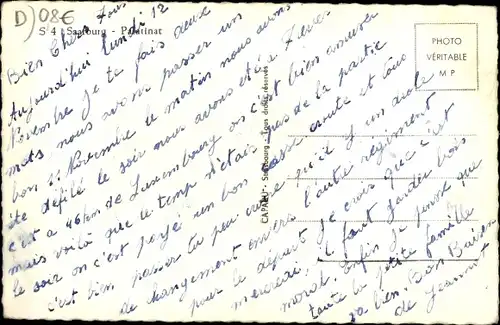 D) 08€
S 4 - Saarburg - Palatinat
PHOTO
VÉRITABLE
M P
CAPARUL - Saarbourg - Tous droits réservés
Bien Chers Tous
Aujourd'hui lundi 12
Novembre je te fais deux
mots nous avons passer un
bon 11 Novembre le matin nous avons
été défilé le soir nous avons été a
c'est a 46 km de Luxembourg on c'est bien amuser
mais voilà que le temps n'était pas de la partie
le soir on c'est payé un bon casse croute et tout
c'est bien passer tu peu voir qu'il y un
de changement envers l'autre régiment
pour le départ je crois que c'est
mercredi il faut garder bois
moral. Enfin je pense que
toute la petite famille
va bien. Bon Baiser
de Jeannot